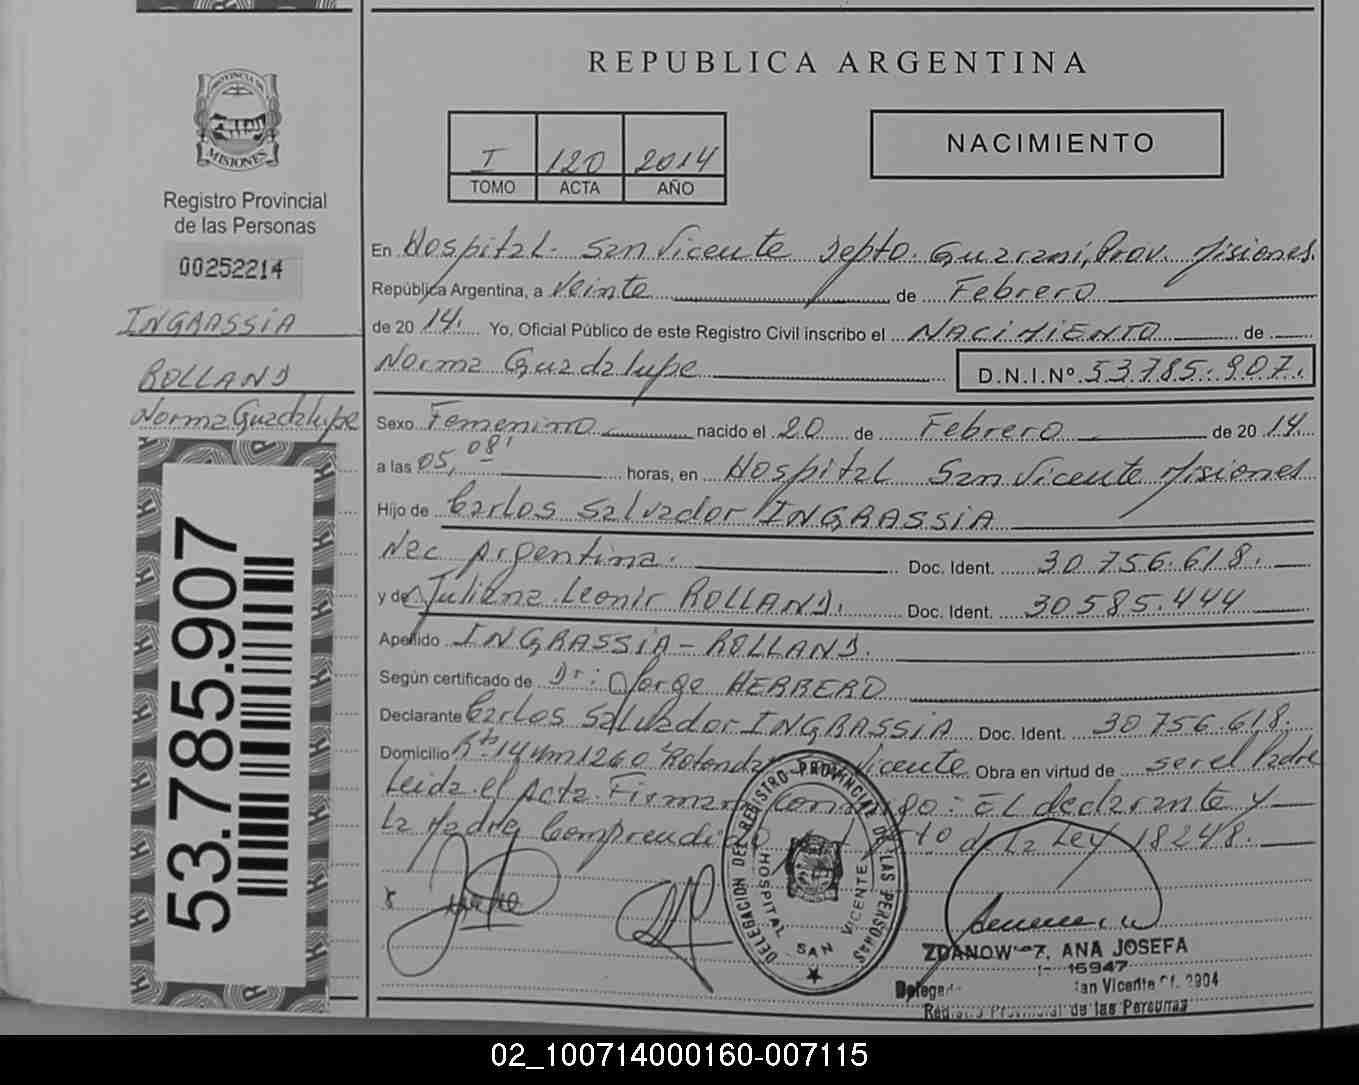 REPUBLICA ARGENTINA
PROVINCIA DE
MISIONES
Registro Provincial
de las Personas
00252214
INGRASSIA
ROLLAND
Norma Guadalupe
53.785.907
I 120 2014
TOMO ACTA AÑO
NACIMIENTO
En Hospital San Vicente Depto. Guarani, Prov. Misiones.
República Argentina, a Veinte de Febrero
de 20 14. Yo, Oficial Público de este Registro Civil inscribo el NACIMIENTO de
Norma Guadalupe D.N.I.Nº 53.785.907.
Sexo Femenino nacido el 20 de Febrero de 20 14.
a las 05, 08' horas, en Hospital San Vicente Misiones
Hijo de Carlos Salvador INGRASSIA
Nac Argentina. Doc. Ident. 30.756.618.
y de Juliana Leonir ROLLAND. Doc. Ident. 30585.444
Apellido INGRASSIA - ROLLAND.
Según certificado de Dr: Jorge HERRERO
Declarante Carlos Salvador INGRASSIA Doc. Ident. 30756.618.
Domicilio Rta 14 Km 1260 Rotonda Vicente Obra en virtud de ser el Padre
Leida el Acta Firman : El declarante y
La Madre Comprendido de La Ley 18248.
DELEGACION DEL REGISTRO PROVINCIAL DE LAS PERSONAS
HOSPITAL SAN VICENTE
ANA JOSEFA
16947
Vicente 2904
Registro Provincial de las Personas
02_100714000160-007115